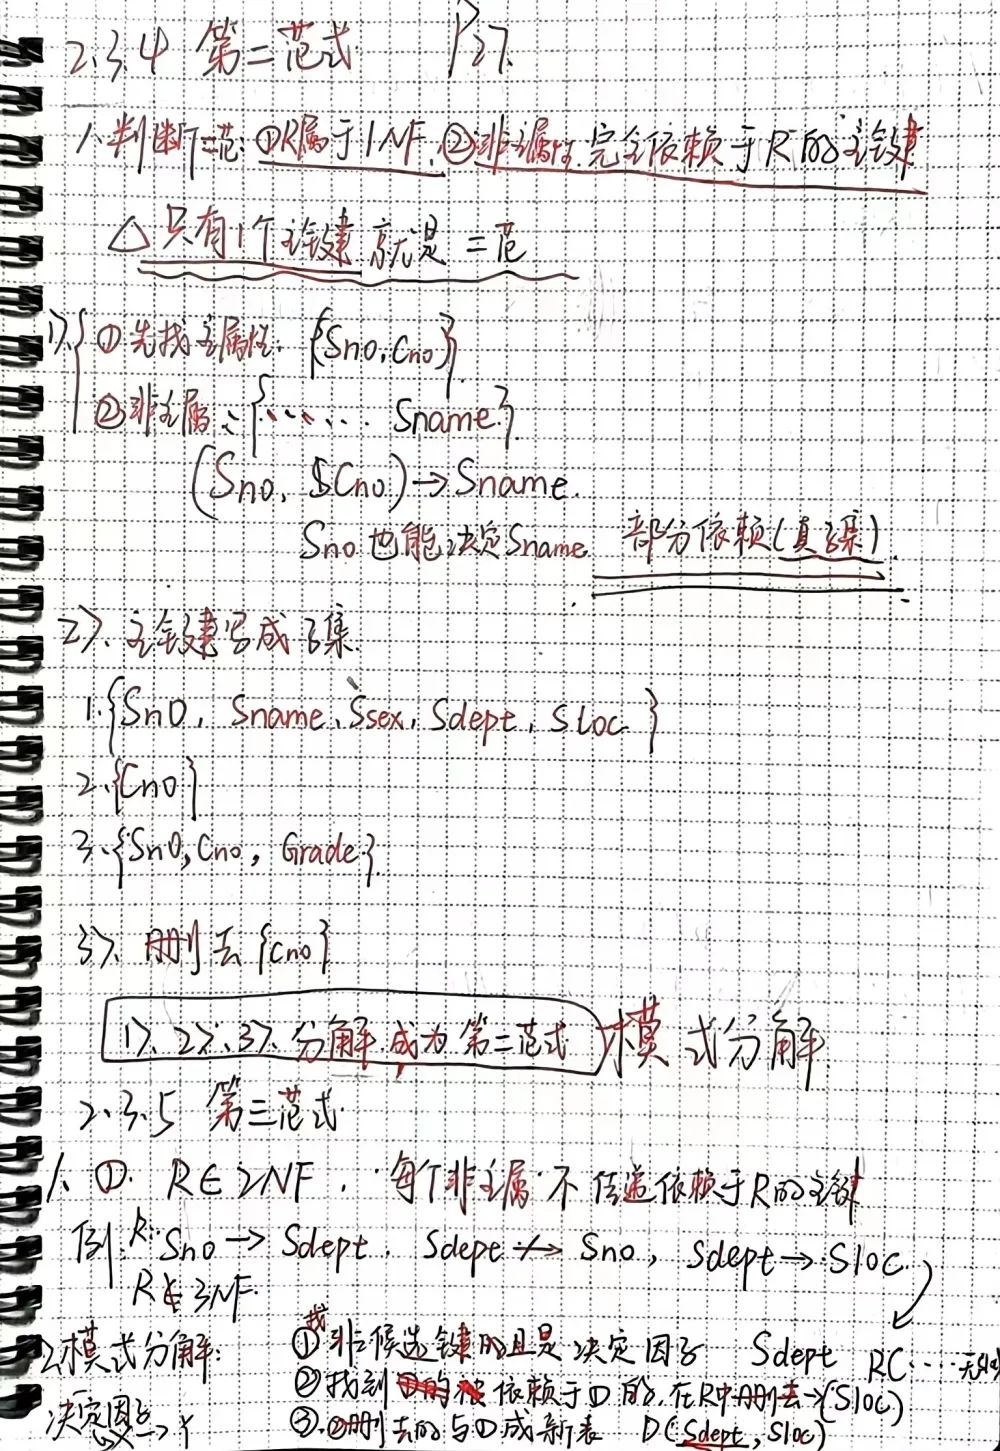 2.3.4 第二范式 P27.
1. 判断二范: ①R属于1NF. ②非主属性完全依赖于R的主键
△ 只有1个主键就是二范
1>. ①先找主属性. {Sno, Cno}
②非主属: {...... Sname}
(Sno, Cno)→Sname.
Sno也能决定Sname. 部分依赖(真子集).
2>. 主键写成子集
1.{Sno, Sname, Ssex, Sdept, Sloc}
2.{Cno}
3.{Sno, Cno, Grade}
3>. 删去{Cno}
1>.2>.3>.分解成为第二范式 模式分解
2.3.5 第三范式
1. ①. R∈2NF, 每个非主属不传递依赖于R的主键
例: R: Sno → Sdept. Sdept ↛ Sno, Sdept → Sloc.
R∉3NF.
2.模式分解: ①找非候选键的且是决定因子 Sdept R(....无Sloc)
②找到依赖于①的.在R中删去→(Sloc)
决定因子→Y ③.②删去的与①成新表 D(Sdept, Sloc)